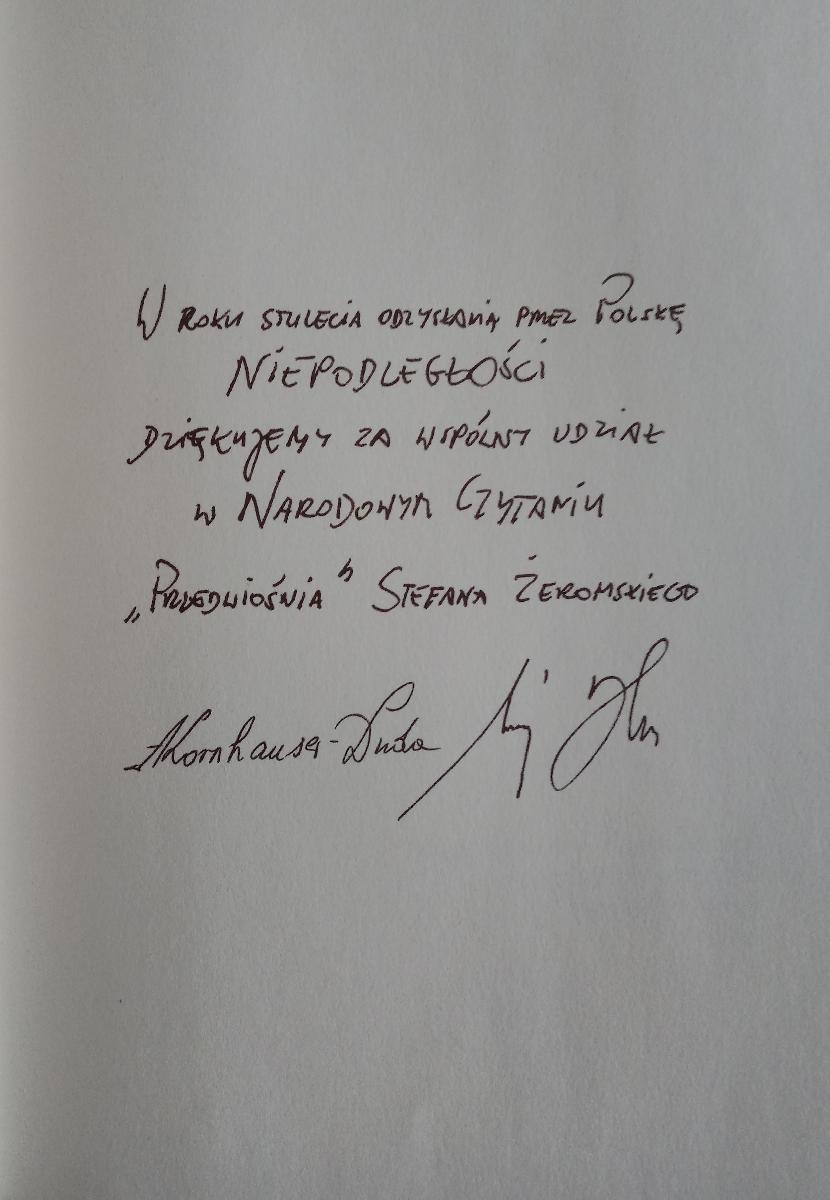 W ROKU STULECIA ODZYSKANIA PRZEZ POLSKĘ
NIEPODLEGŁOŚCI
DZIĘKUJEMY ZA WSPÓLNY UDZIAŁ
W NARODOWYM CZYTANIU
„PRZEDWIOŚNIA” STEFANA ŻEROMSKIEGO
AKornhauser-Duda